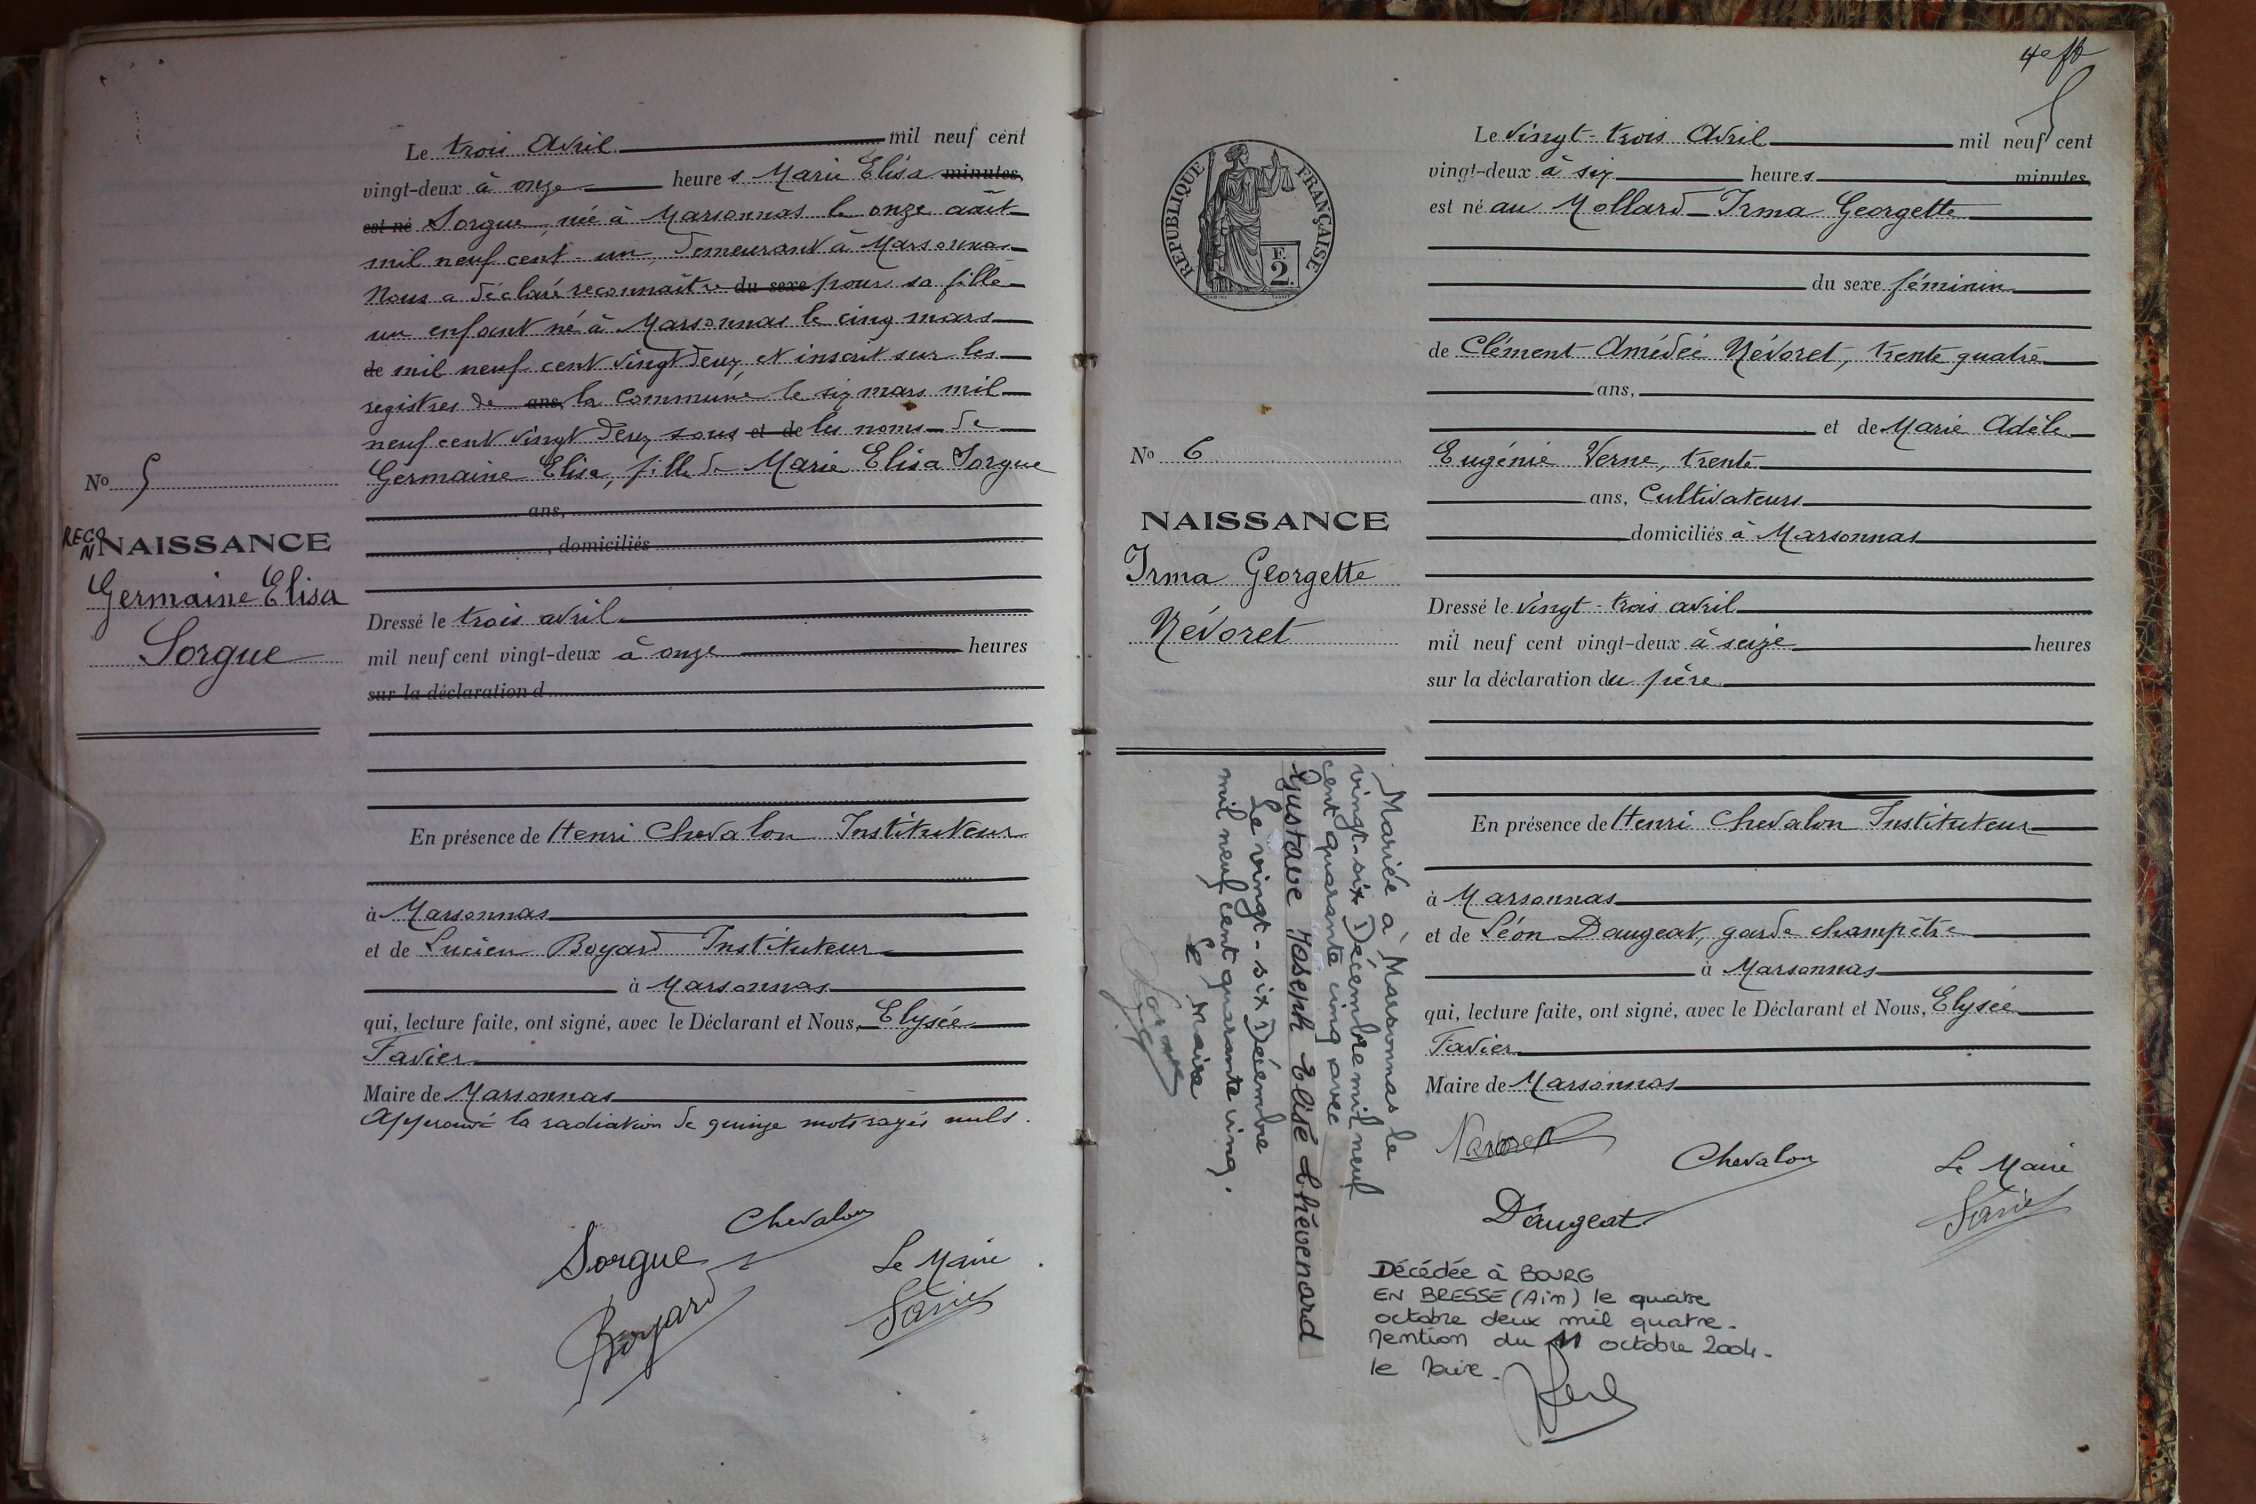 Le trois Avril mil neuf cent
vingt-deux à onze heures Marie Elisa minutes
est né Sorgue, née à Marsonnas le onze août
mil neuf cent un, demeurant à Marsonnas
Nous a déclaré reconnaître du sexe pour sa fille
un enfant né à Marsonnas le cinq mars
de mil neuf cent vingt deux et inscrit sur les
registres de ans, la Commune le six mars mil
neuf cent vingt deux sous et de les noms de
Germaine Elisa, fille de Marie Elisa Sorgue
ans,
, domiciliés
Dressé le trois avril
mil neuf cent vingt-deux à onze heures
sur la déclaration d
No 5
RECON
NAISSANCE
Germaine Elisa
Sorgue
En présence de Henri Chevalon Instituteur
à Marsonnas
et de Lucien Boyard Instituteur
à Marsonnas
qui, lecture faite, ont signé, avec le Déclarant et Nous, Elysée
Favier
Maire de Marsonnas
Approuvé la radiation de quinze mots rayés nuls.
Chevalon
Sorgue
Le Maire
Boyard
Favier
4e
RÉPUBLIQUE FRANÇAISE
F.
2.
Le vingt-trois Avril mil neuf cent
vingt-deux à six heures minutes
est né au Mollard Irma Georgette
du sexe féminin
de Clément Amédée Névoret, trente quatre
ans,
et de Marie Adèle
Eugénie Verne, trente
ans, Cultivateurs
domiciliés à Marsonnas
Dressé le vingt-trois avril
mil neuf cent vingt-deux à seize heures
sur la déclaration du père
No 6
NAISSANCE
Irma Georgette
Névoret
Mariée à Marsonnas le
vingt-six Décembre mil neuf
cent quarante cinq avec
Gustave Joseph Elisé Chèvenard
Le vingt-six Décembre
mil neuf cent quarante cinq.
Le Maire
En présence de Henri Chevalon Instituteur
à Marsonnas
et de Léon Daugeat, garde champêtre
à Marsonnas
qui, lecture faite, ont signé, avec le Déclarant et Nous, Elysée
Favier
Maire de Marsonnas
Nevoret
Chevalon
Le Maire
Daugeat
Favier
Décédée à BOURG
EN BRESSE (Ain) le quatre
octobre deux mil quatre.
Mention du 11 octobre 2004.
le Maire.